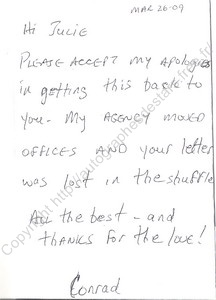 MAR 26-09
Hi Julie
PLEASE ACCEPT my APOLOGIES
in getting this back to
you - My AGENCY MOVED
OFFICES AND your letter
was lost in the shuffle
All the best - and
THANKS FOR the love!
Conrad